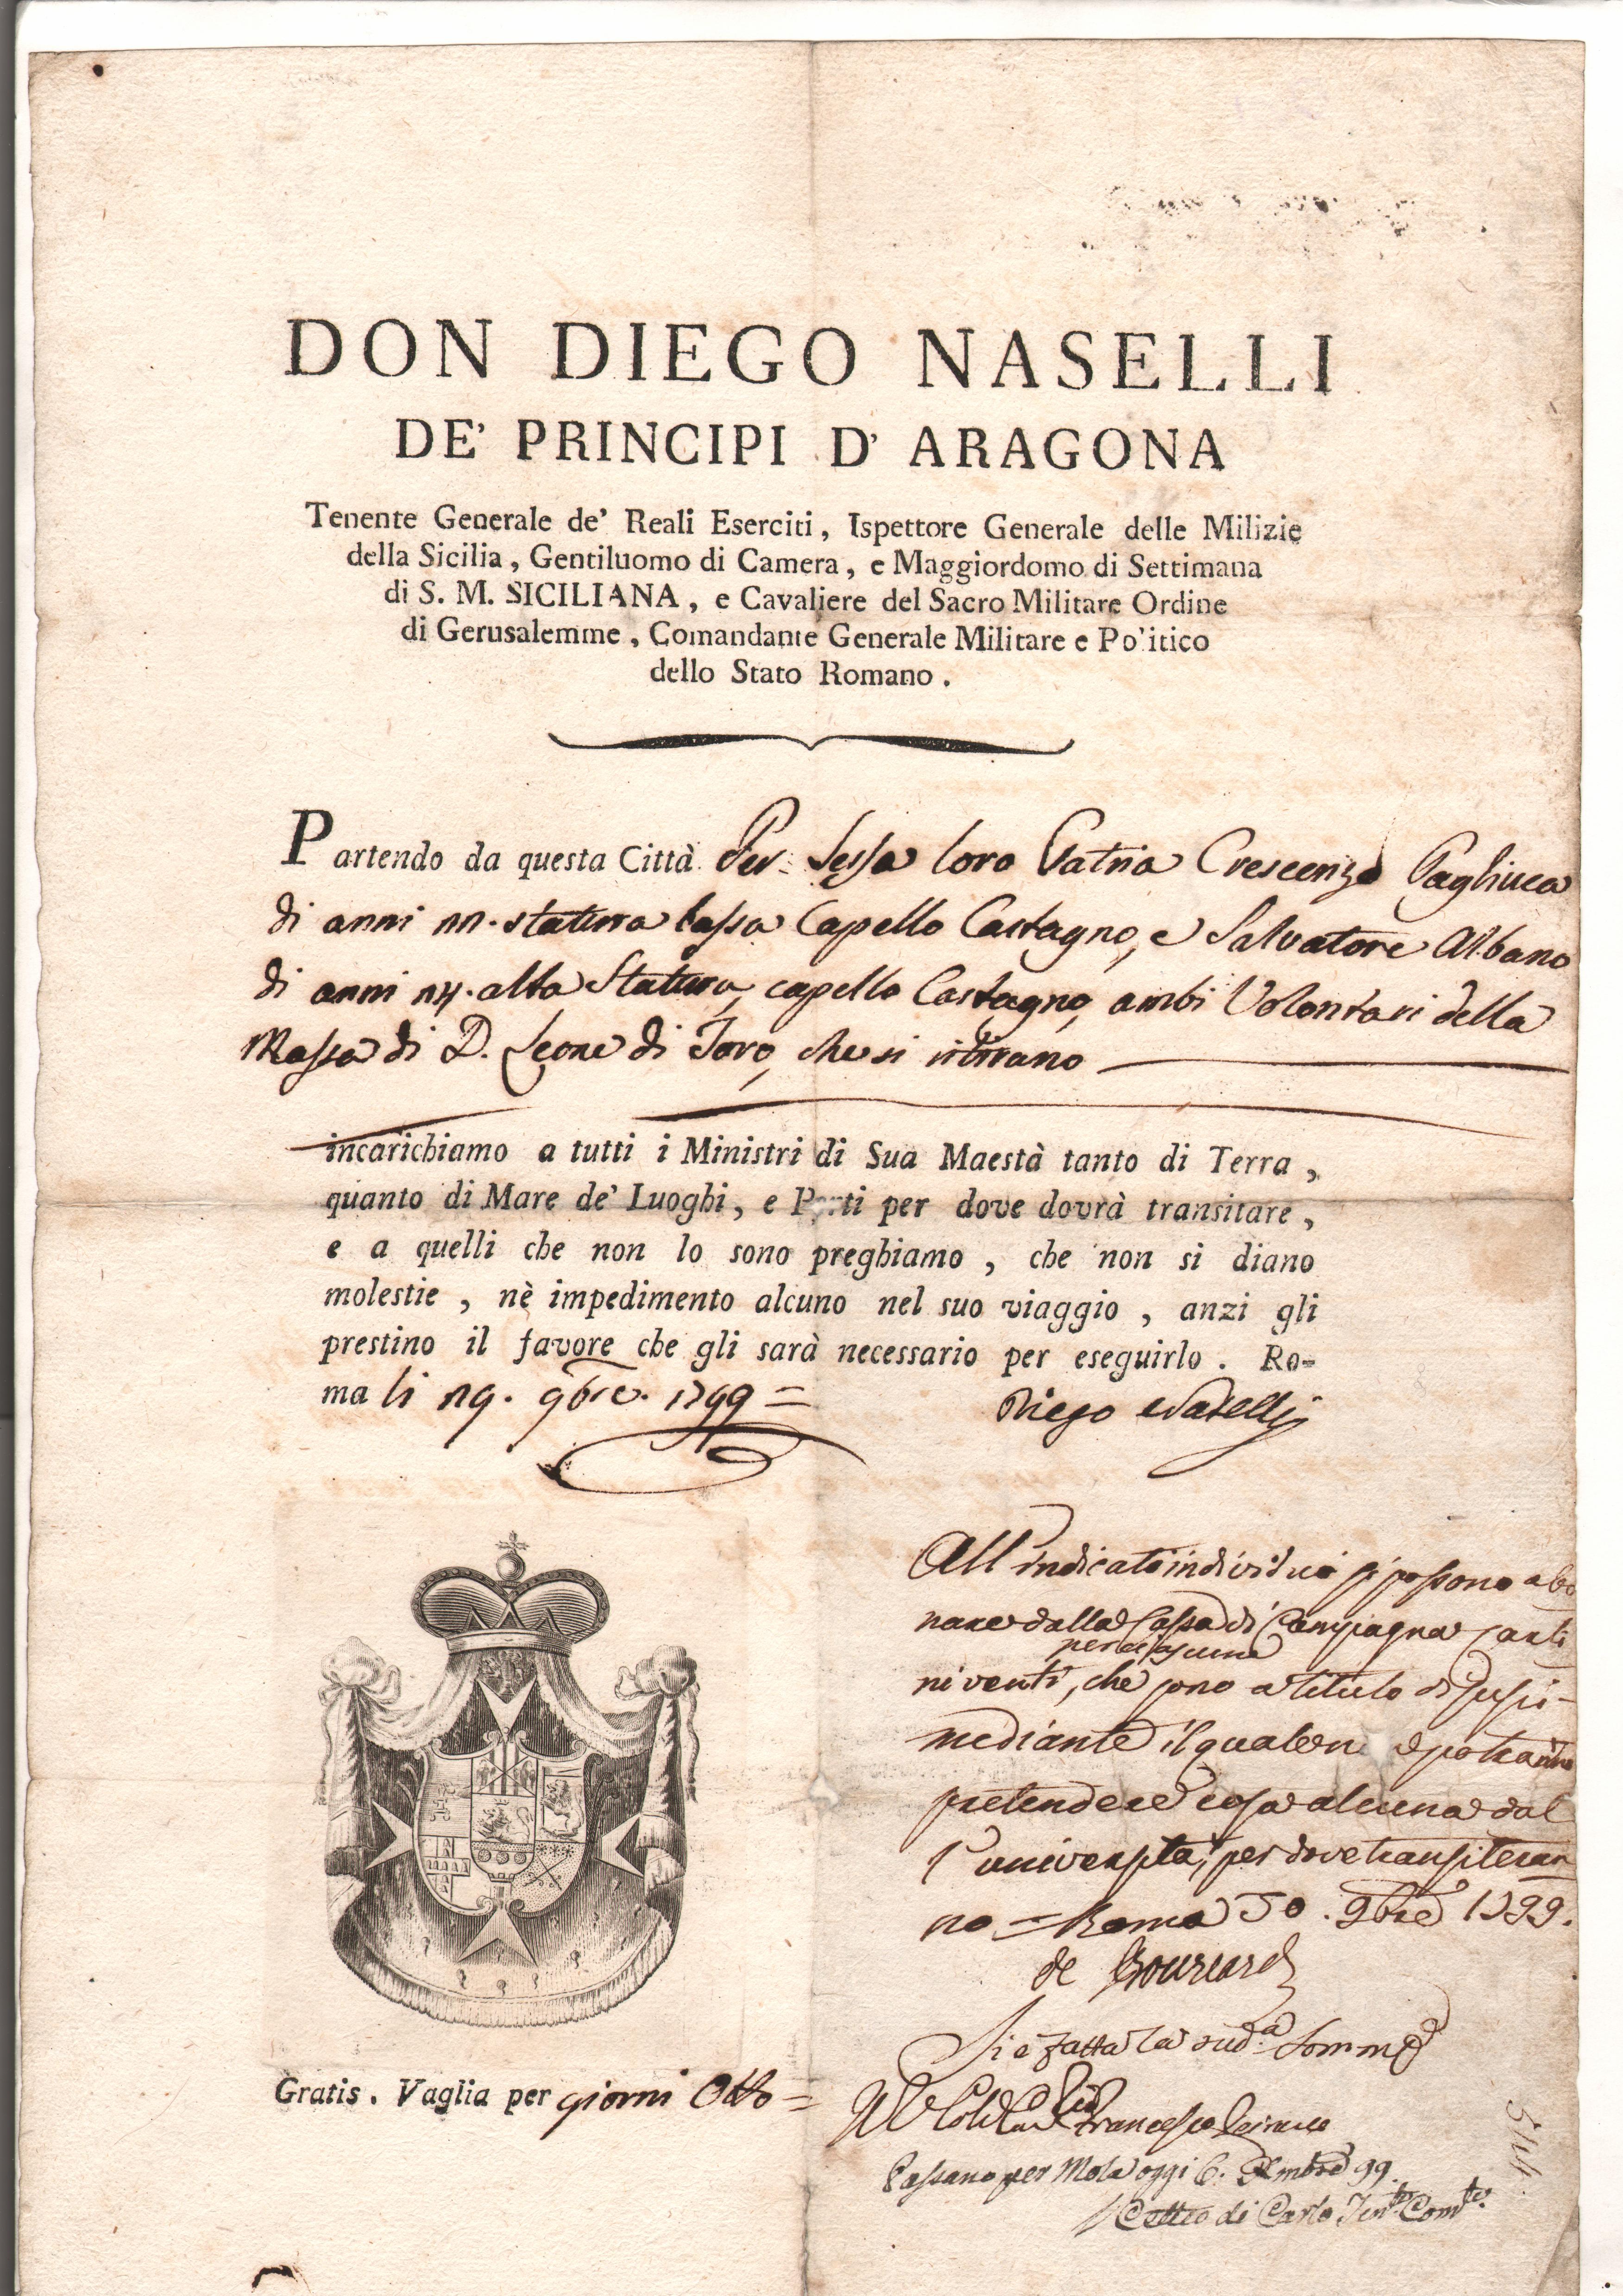 DON DIEGO NASELLI
DE' PRINCIPI D' ARAGONA
Tenente Generale de' Reali Eserciti, Ispettore Generale delle Milizie
della Sicilia, Gentiluomo di Camera, e Maggiordomo di Settimana
di S. M. SICILIANA, e Cavaliere del Sacro Militare Ordine
di Gerusalemme, Comandante Generale Militare e Politico
dello Stato Romano.
Partendo da questa Città Per Sessa loro Patria Crescenzo Pagliuca
di anni 22. statura bassa Capello Castagno, e Salvatore Albano
di anni 24. alta Statura, capello Castagno, ambi Volontari della
Massa di D. Leone di Toro, che si ritirano
incarichiamo a tutti i Ministri di Sua Maestà tanto di Terra,
quanto di Mare de' Luoghi, e Porti per dove dovrà transitare,
e a quelli che non lo sono preghiamo, che non si diano
molestie, nè impedimento alcuno nel suo viaggio, anzi gli
prestino il favore che gli sarà necessario per eseguirlo. Ro-
ma li 29. 9bre. 1799 =
Diego Naselli
All indicati individui si possono abo
nare dalla Cassa di Campagna carli
per ciascuno
ni venti, che sono a titulo di
mediante il quale potranno
pretendere cosa alcuna dal
l'università, per dove transiteran
no = Roma 30. 9bre 1799.
de Bourcard
Si è fatta la sud.a Somma
Francesco
Gratis. Vaglia per giorni Otto =
Passano per Mola oggi 6. Xmbre 99.
di Carlo Ten.te Com.te